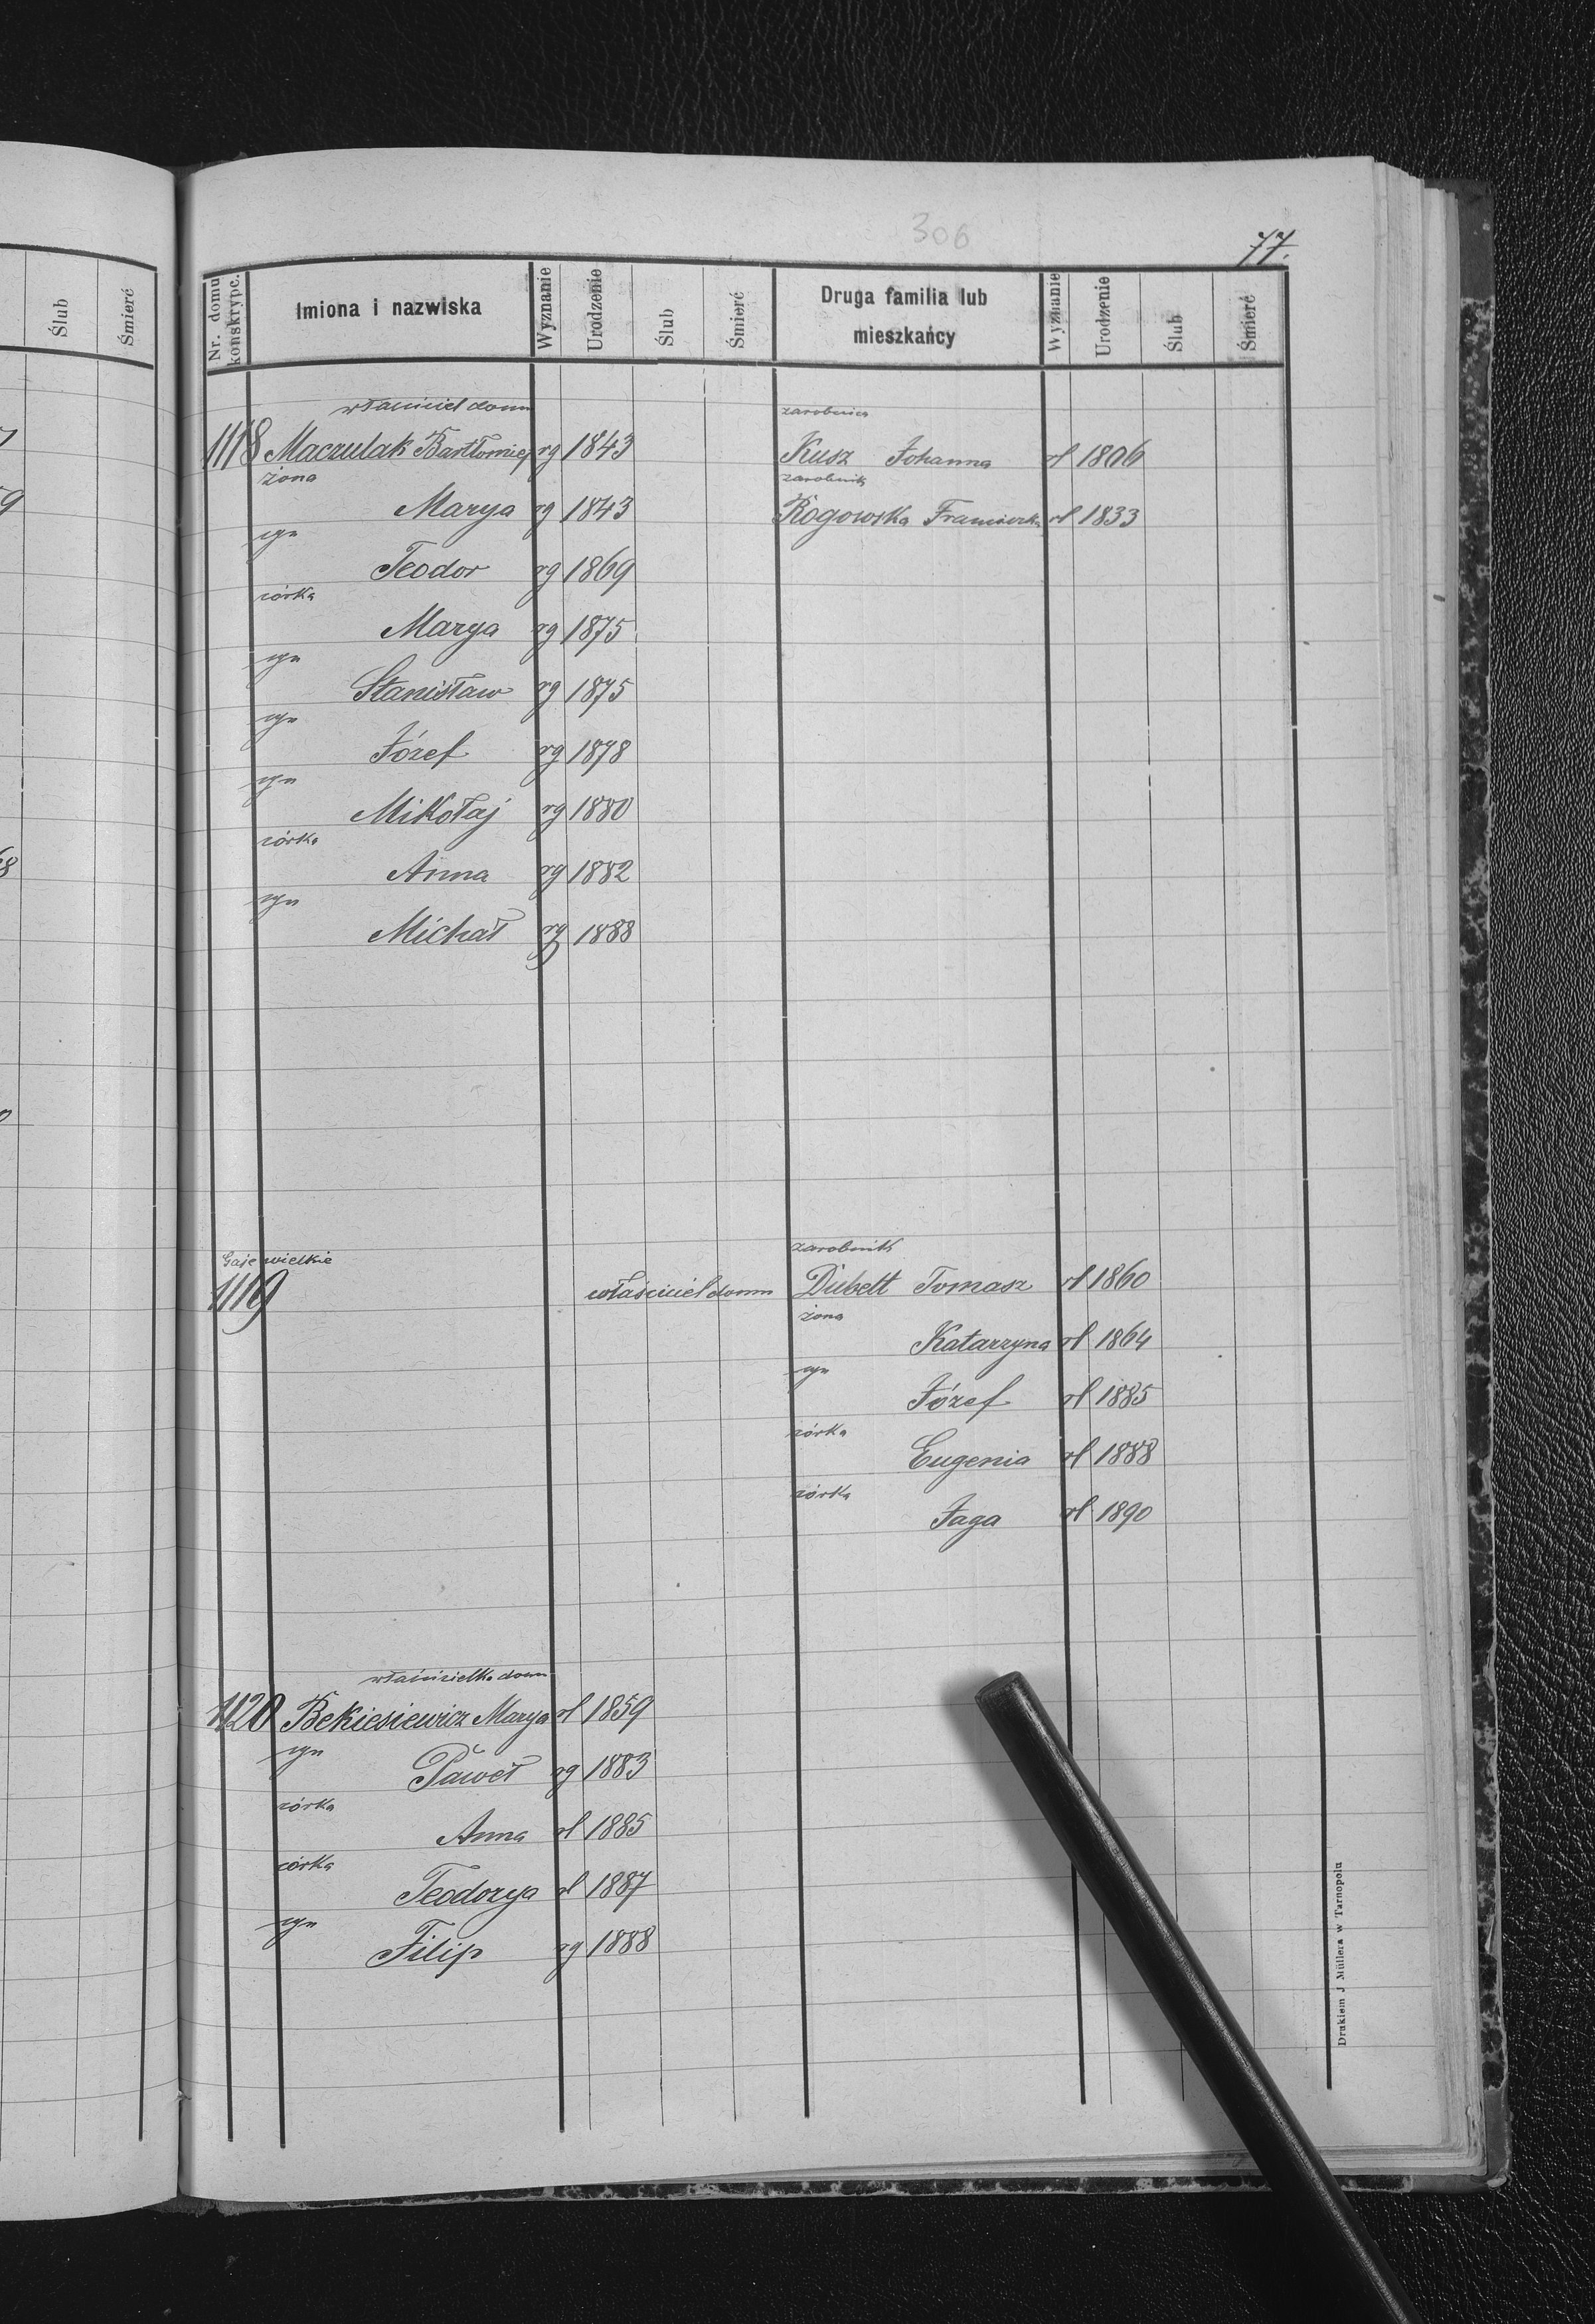 306
77.
Ślub
Śmierć
Nr. domu konskrypc.
Imiona i nazwiska
Wyznanie
Urodzenie
Ślub
Śmierć
Druga familia lub
mieszkańcy
Wyznanie
Urodzenie
Ślub
Śmierć
właściciel domu
1118 Maczulak Bartłomiej rg 1843
żona
Marya rg 1843
syn
Teodor rg 1869
córka
Marya rg 1875
syn
Stanisław rg 1875
syn
Józef rg 1878
syn
Mikołaj rg 1880
córka
Anna rg 1882
syn
Michał rg 1888
zarobnica
Kusz Johanna rl 1806
zarobnik
Rogowska Franciszka rl 1833
Gaje wielkie
1119
właściciel domu
zarobnik
Dubelt Tomasz rl 1860
żona
Katarzyna rl 1864
syn
Józef rl 1885
córka
Eugenia rl 1888
córka
Jaga rl 1890
właścicielka domu
1120 Bekiesiewicz Marya rl 1859
syn
Paweł rg 1883
córka
Anna rl 1885
córka
Teodozya rl 1887
syn
Filip rg 1888
Drukiem J Müllera w Tarnopolu